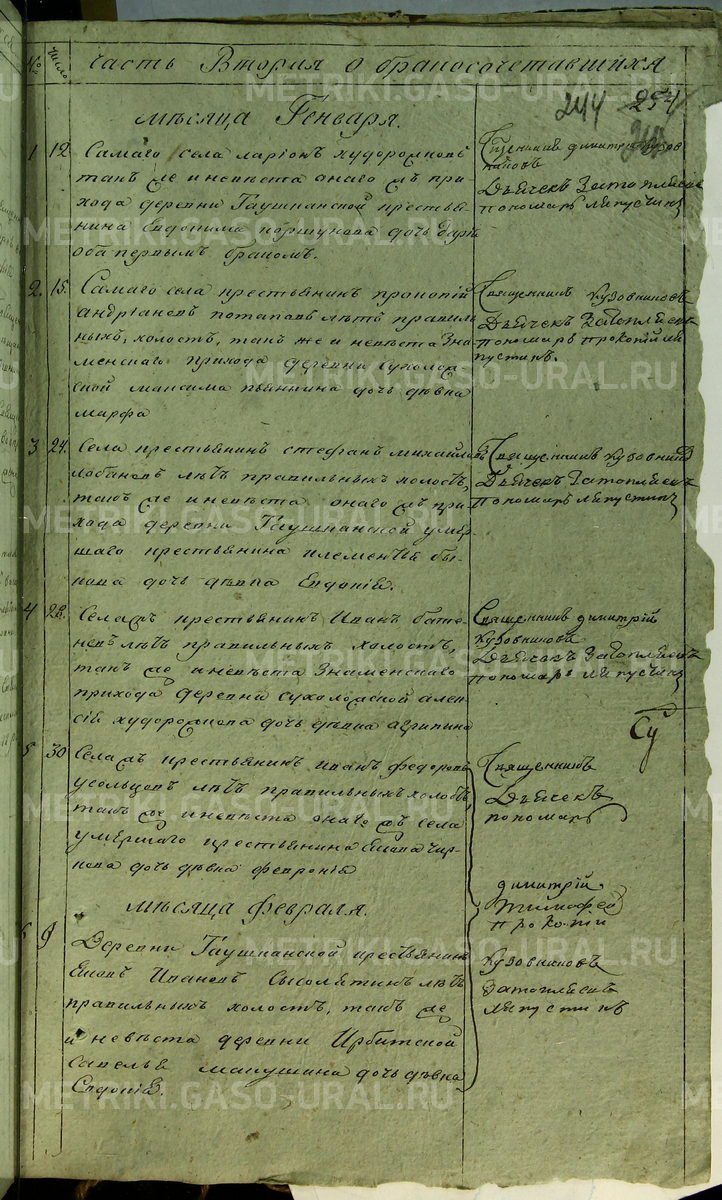 № Число Часть Вторая о бракосочетавшихся
244 254
мѣсяца Генваря.
1 12 Самаго села ларiонъ худорожковъ
такъ же и невѣста онаго жъ при-
хода деревни Гаушканской крестья-
нина Евдокима коршунова дочь дарья
оба первымъ бракомъ.
Священникъ димитрiй Кузов
никовъ
Дьячекъ Затопляевъ
пономарь ляпустинъ
2. 15. Самаго села крестьянинъ прокопiй
андрiановъ потаповъ лѣтъ правиль
ныхъ, холостъ, такъ же и невѣста Зна
менскаго прихода деревни сухолож
ской максима пьянкина дочь дѣвка
марфа
Священникъ Кузовниковъ
Дьячекъ Затопляевъ
пономарь прокопiй ля
пустинъ.
3 24. Села крестьянинъ стефанъ михайловъ
лобановъ лѣтъ правильныхъ холостъ,
такъ же и невѣста онаго жъ при
хода деревни Гаушканской умер
шаго крестьянина клементья бы-
кова дочь дѣвка Евдокiя.
Священникъ Кузовниковъ
Дьячекъ Затопляевъ
пономарь ляпустинъ
4 28. Села жъ крестьянинъ Иванъ бате
невъ лѣтъ правильныхъ холостъ,
такъ же и невѣста Знаменскаго
прихода деревни сухоложской алек
сiя худорожкова дочь дѣвка агрипина
Священникъ димитрiй
Кузовниковъ
Дьячекъ Затопляевъ
пономарь ляпустинъ
5 30 Села жъ крестьянинъ иванъ федоровъ
усольцовъ лѣтъ правильныхъ холостъ,
такъ же и невѣста онаго жъ села
умершаго крестьянина Якова чир-
кова дочь дѣвка феврония
Священникъ
Дьячекъ
пономарь
мѣсяца февраля.
6 9 Деревни Гаушканской крестьянинъ
Яковъ Ивановъ Сысолятинъ лѣтъ
правильныхъ холостъ, такъ же
и невѣста деревни Ирбитской
савелья макушина дочь дѣвка
Евдокiя.
димитрiй
тимофей
прокопiй
Кузовниковъ
Затопляевъ
ляпустинъ
METRIKI.GASO-URAL.RU